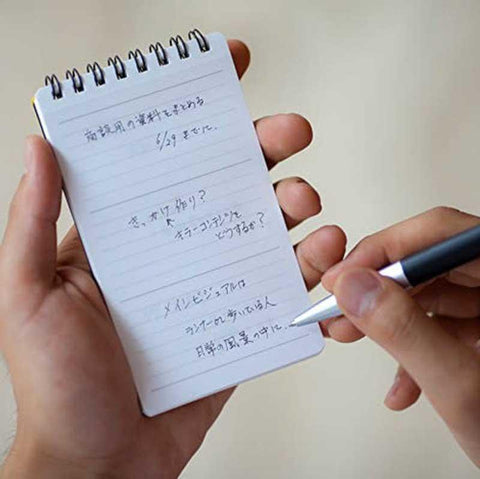 商談用の資料をまとめる
6/29 までに
きっかけ作り?
キラーコンテンツを
どうするか?
メインビジュアルは
ランナーか歩いている人
日常の風景の中に